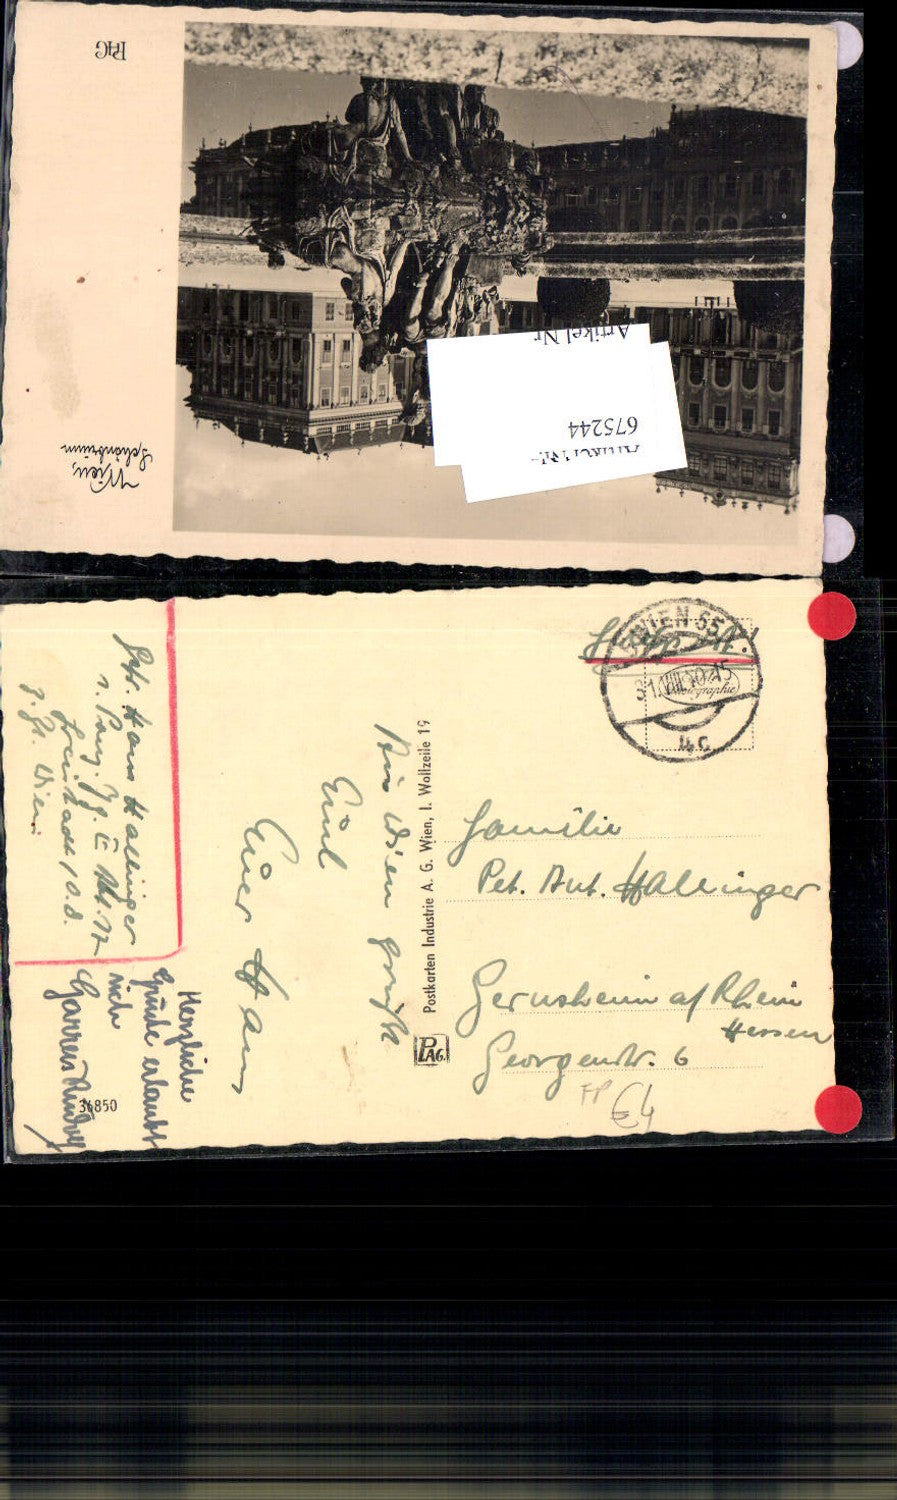 PAG
Wien,
Schönbrunn
Artikel Nr
Artikel Nr.
675244
Feldpost!
WIEN 55
31.VIII.40.-15
4c
Photographie
Familie
Pet. Ant. Hallinger
Gernsheim a/Rhein
Hessen
Georgenstr. 6
Postkarten Industrie A. G. Wien, I. Wollzeile 19
PAG.
Aus Wien grüßt
Euch
Euer Hans
Hans Hallinger
Wien
Herzliche
Grüße erlaubt
sich
36850
FP
€4